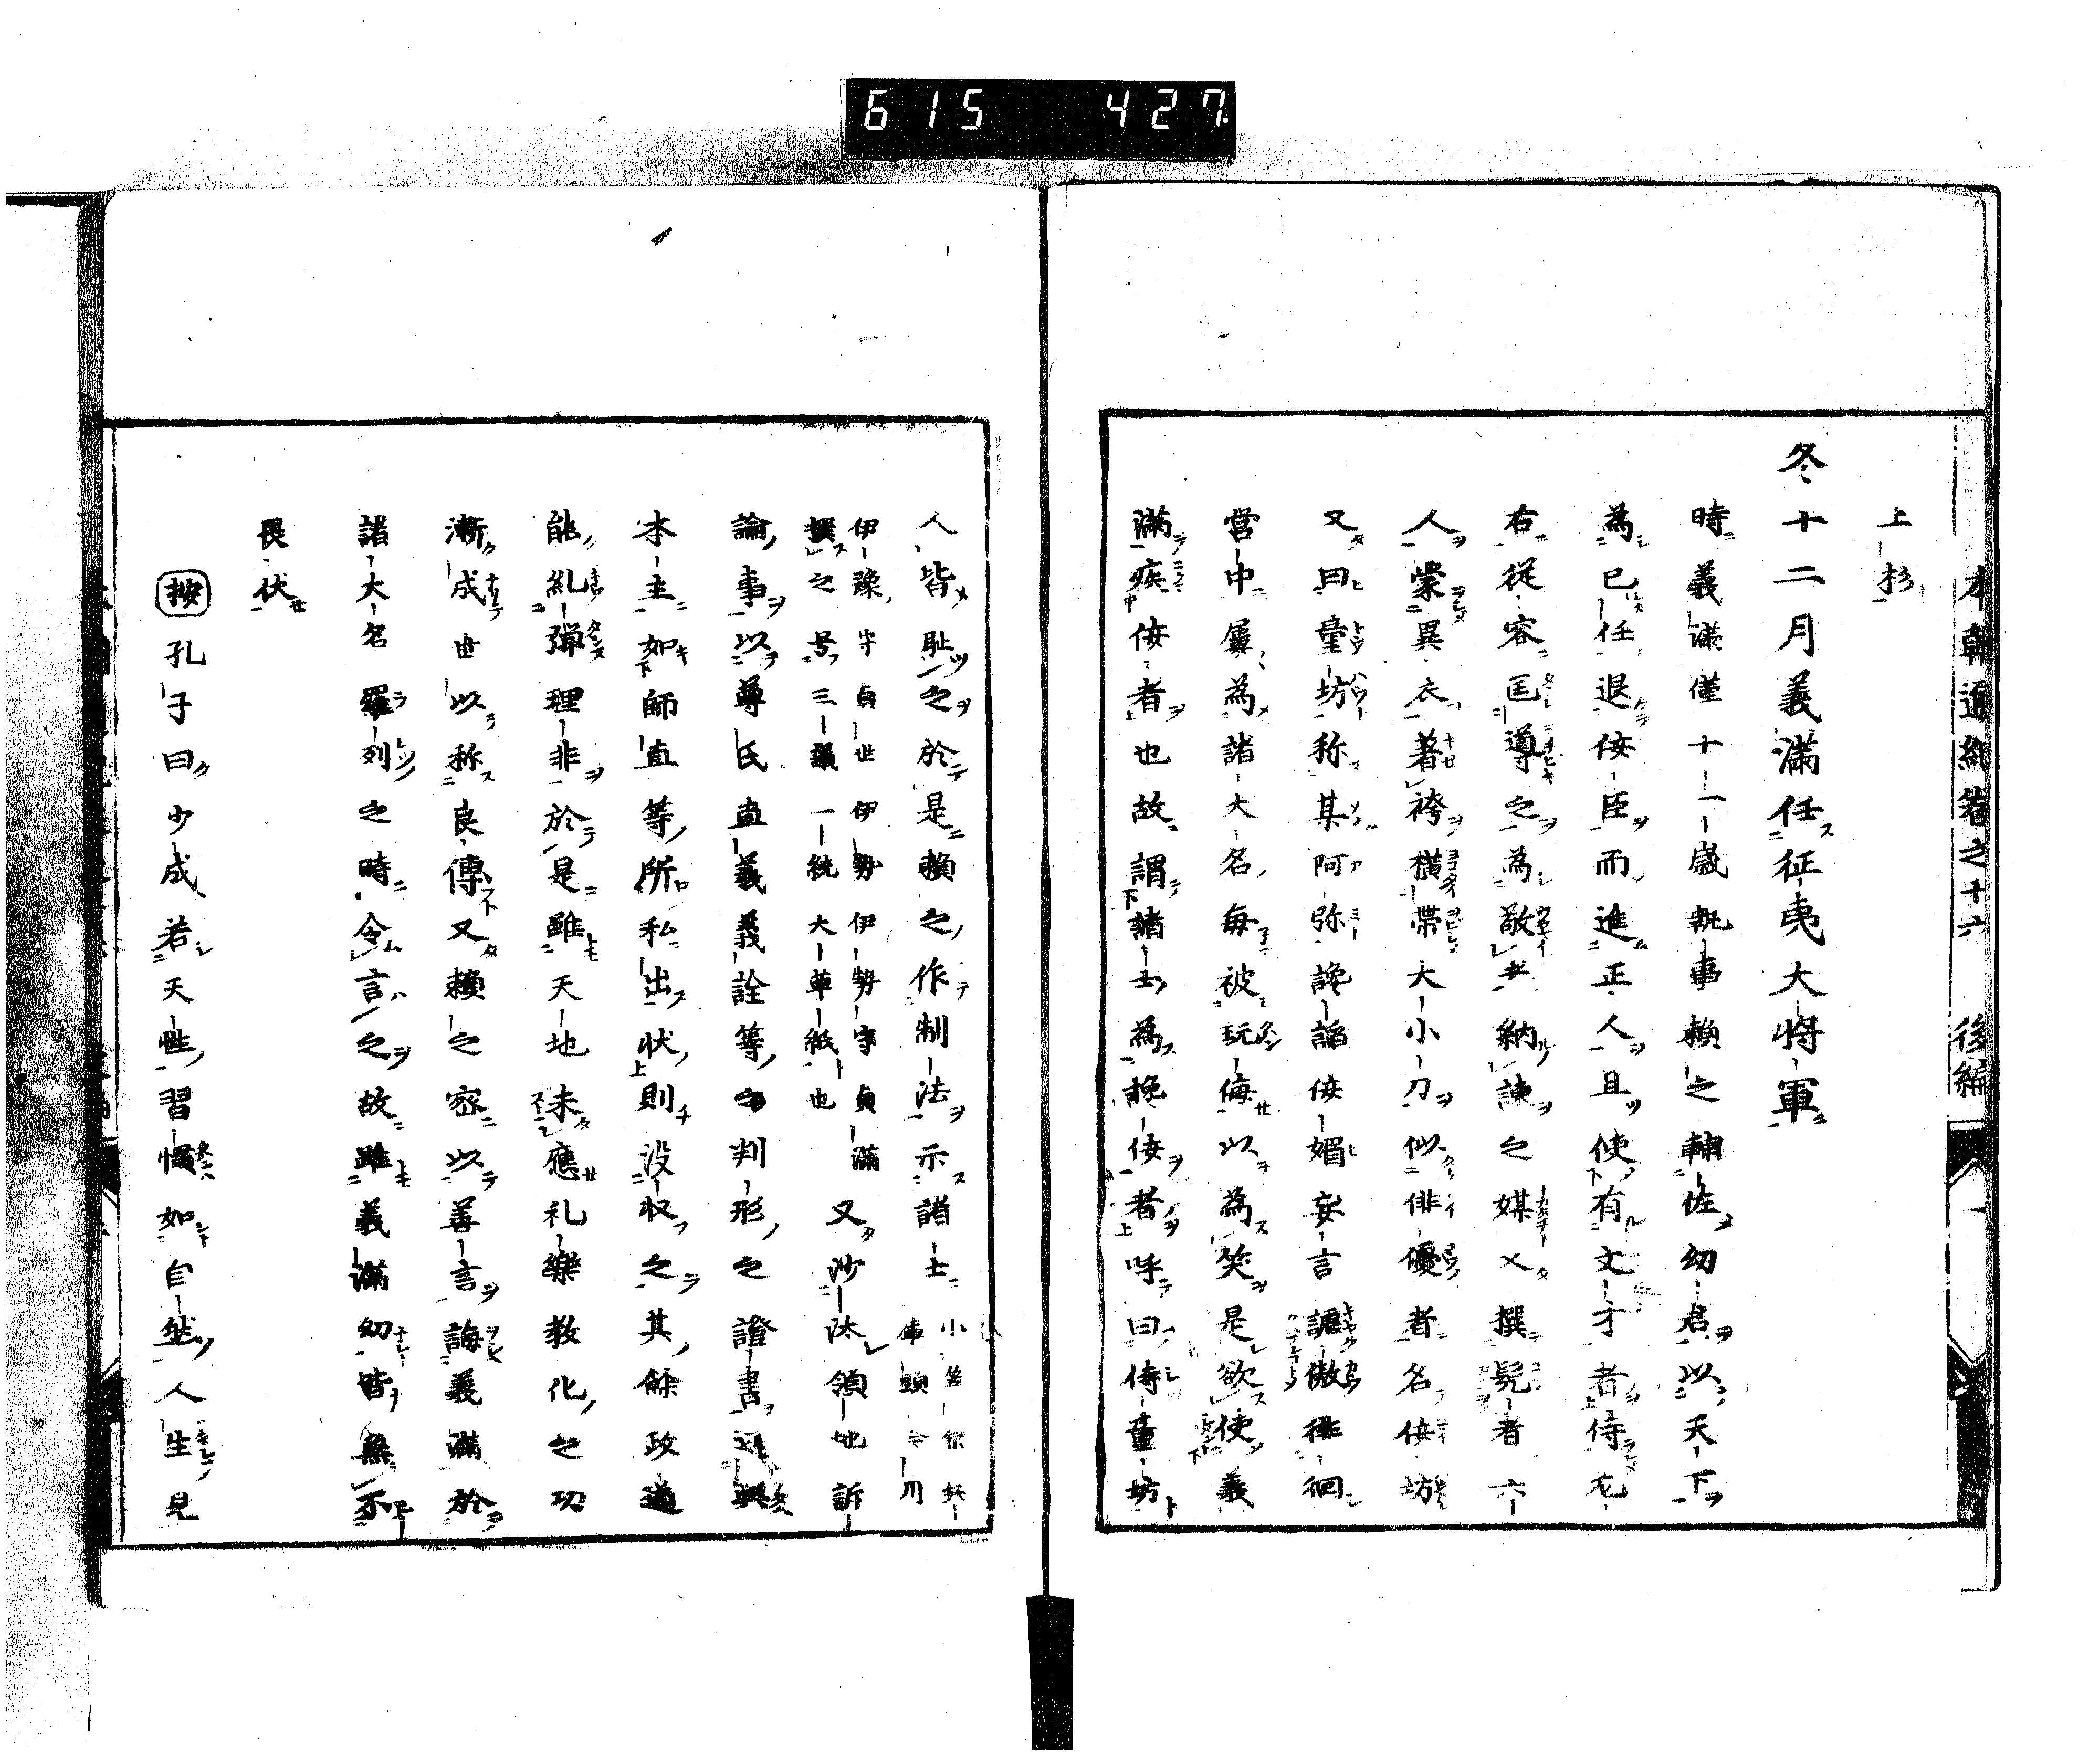 615 427
本朝通紀卷之十六 後編
上杉
冬十二月義滿任征夷大将軍
時義滿僅十一歳執事頼之輔佐幼君以天下
為己任退佞臣而進正人且使有文才者侍左
右從容匡導之為敬士納諫之媒又撰髡者六
人蒙異衣著袴横帶大小刀似俳優者名佞坊
又曰童坊称某阿弥讒諂佞媚妄言謔傲徘徊
営中屢為諸大名毎被玩侮以為笑是欲使義
滿疾佞者也故謂諸士為讒佞者呼曰侍童坊
人皆恥之於是頼之作制法示諸士
伊豫守貞世伊勢伊勢守貞滿
撰之号三議一統大草紙也
又沙汰領地訴
論事以尊氏直義義詮等之判形之證書
本主如師直等所私出状則没収之其餘政道
能糺弾理非於是雖天地未應礼樂教化之功
漸成世以称良傳又頼之密以善言誨義滿於
諸大名羅列之時令言之故雖義滿幼皆無不
畏伏
按孔子曰少成若天性習慣如自然人生見